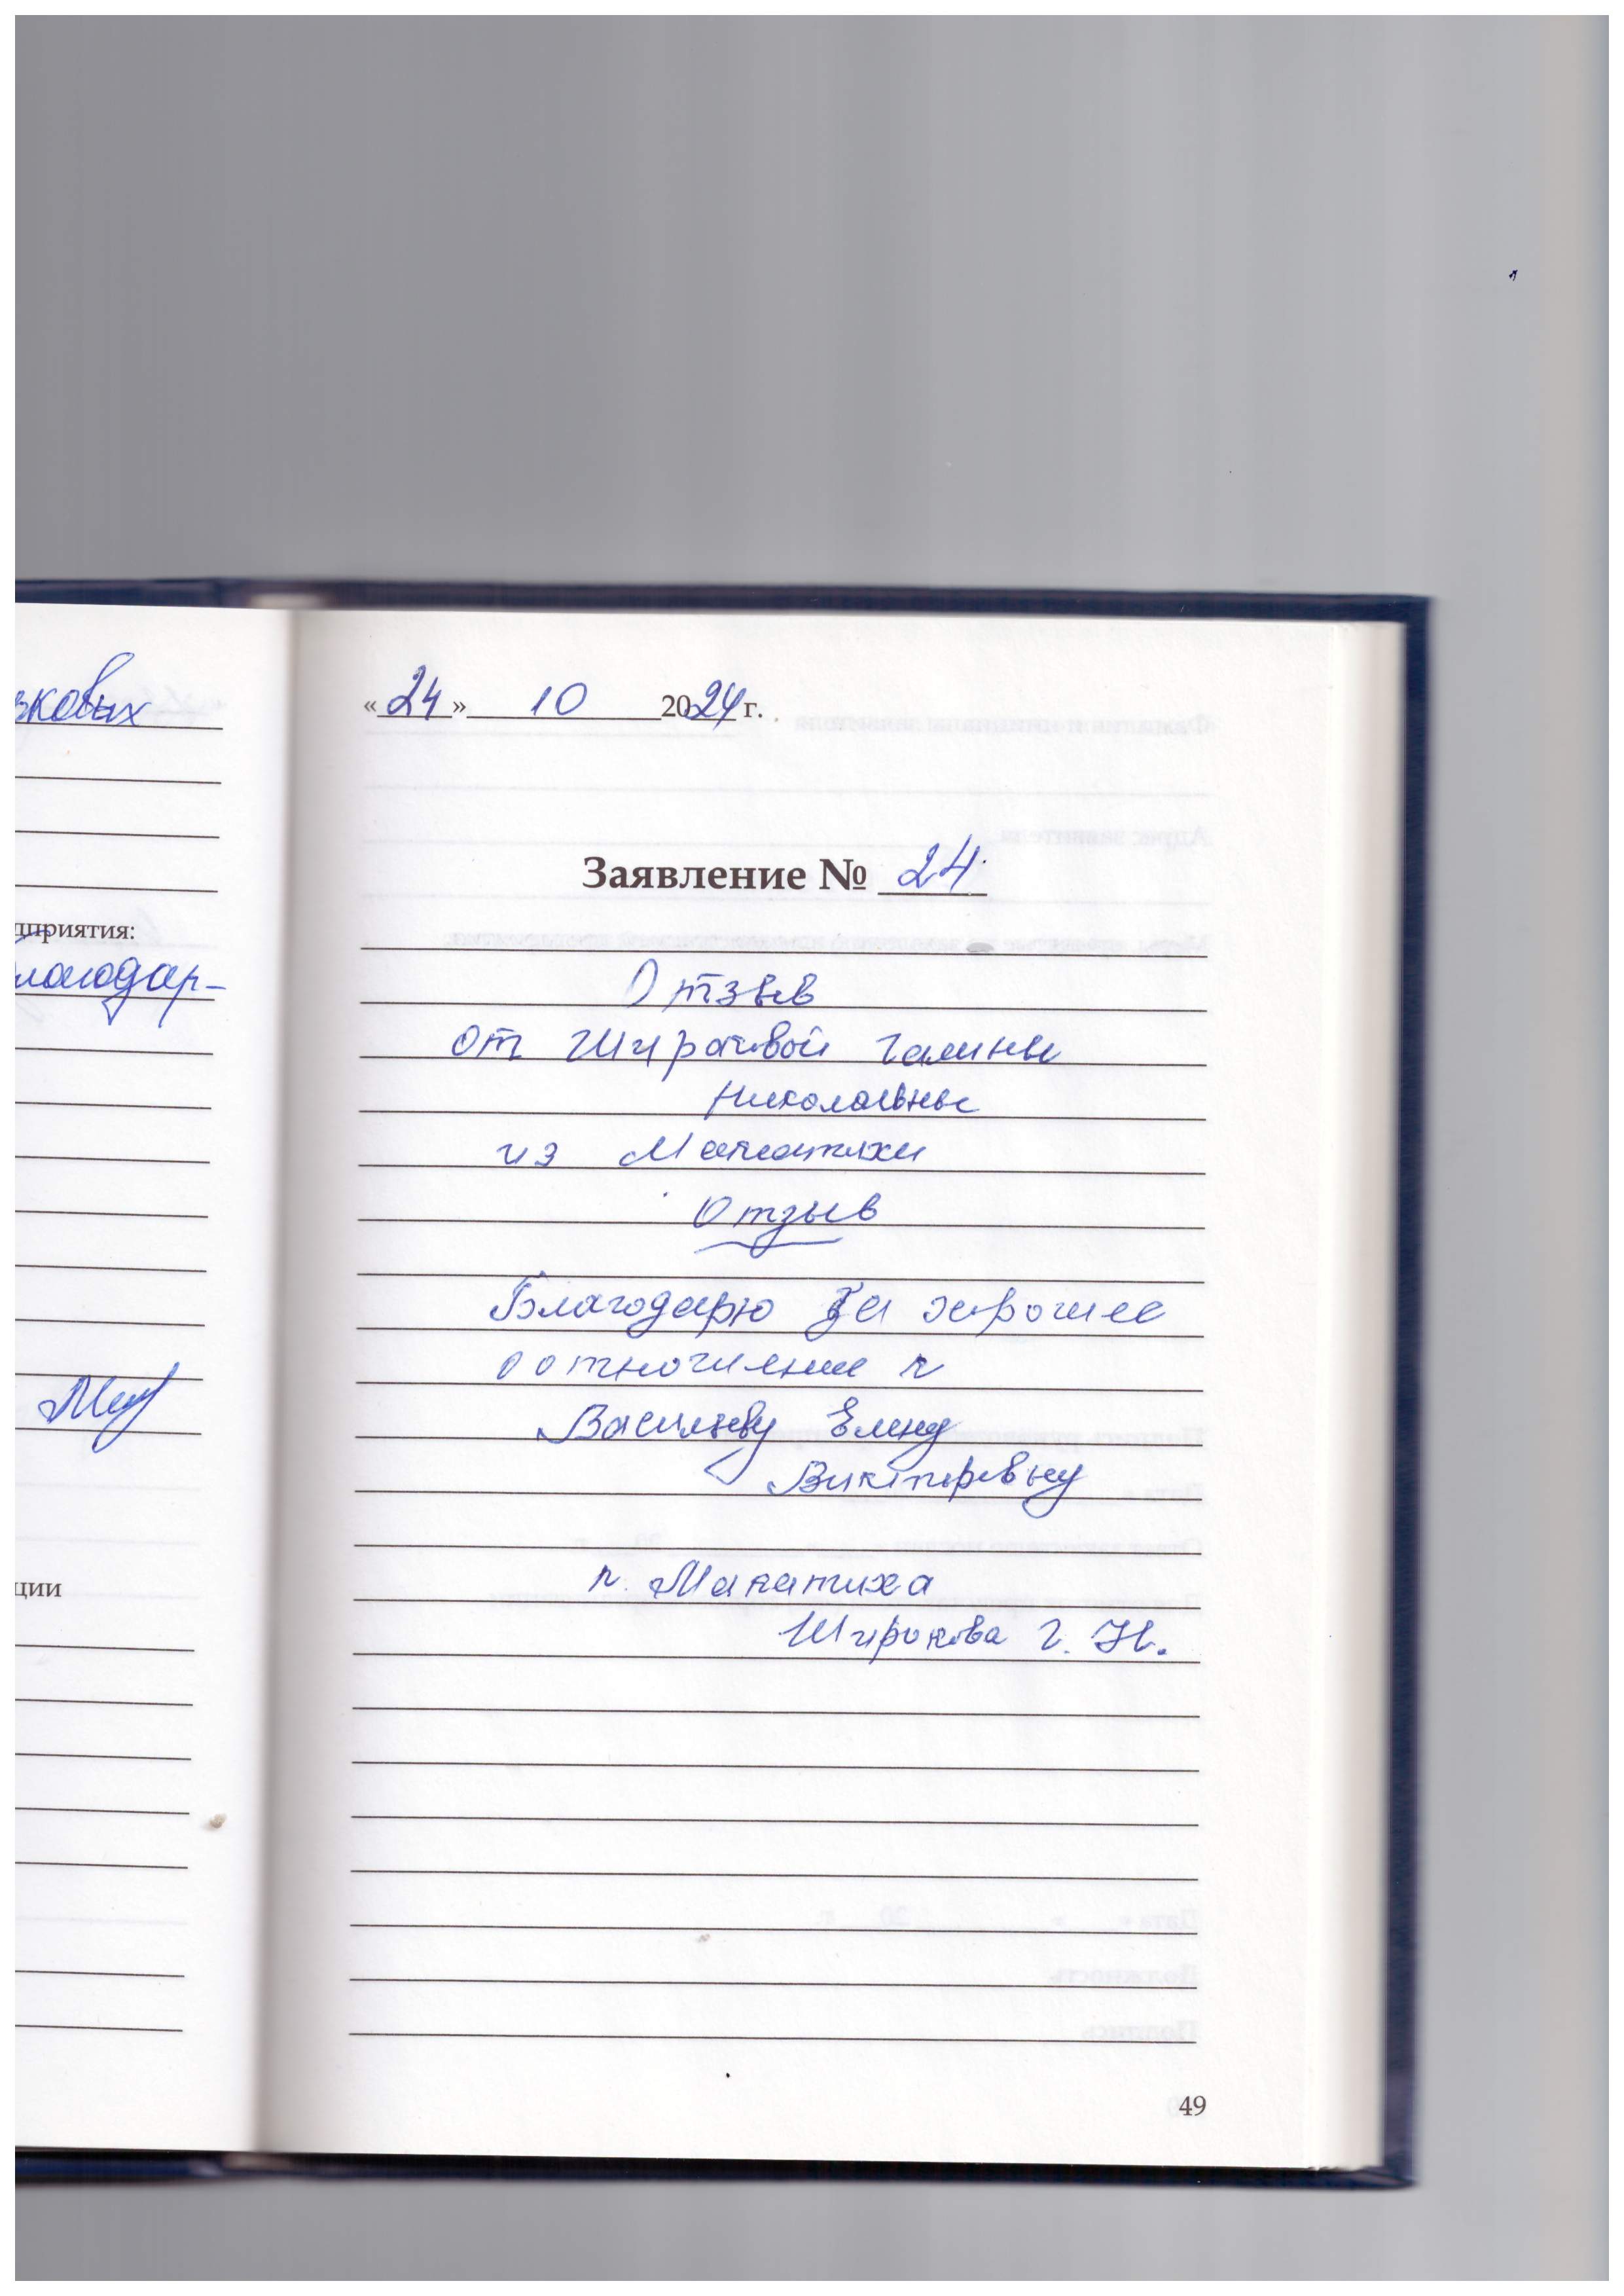 зковых
дприятия:
лагодар-
ции
«24» 10 2024 г.
Заявление № 24
Отзыв
от Широковой Галины
Николаевны
из Малатихи
Отзыв
Благодарю за хорошее
отношение к
Василеву Елену
Викторовну
п. Малатиха
Широкова Г. Н.
49